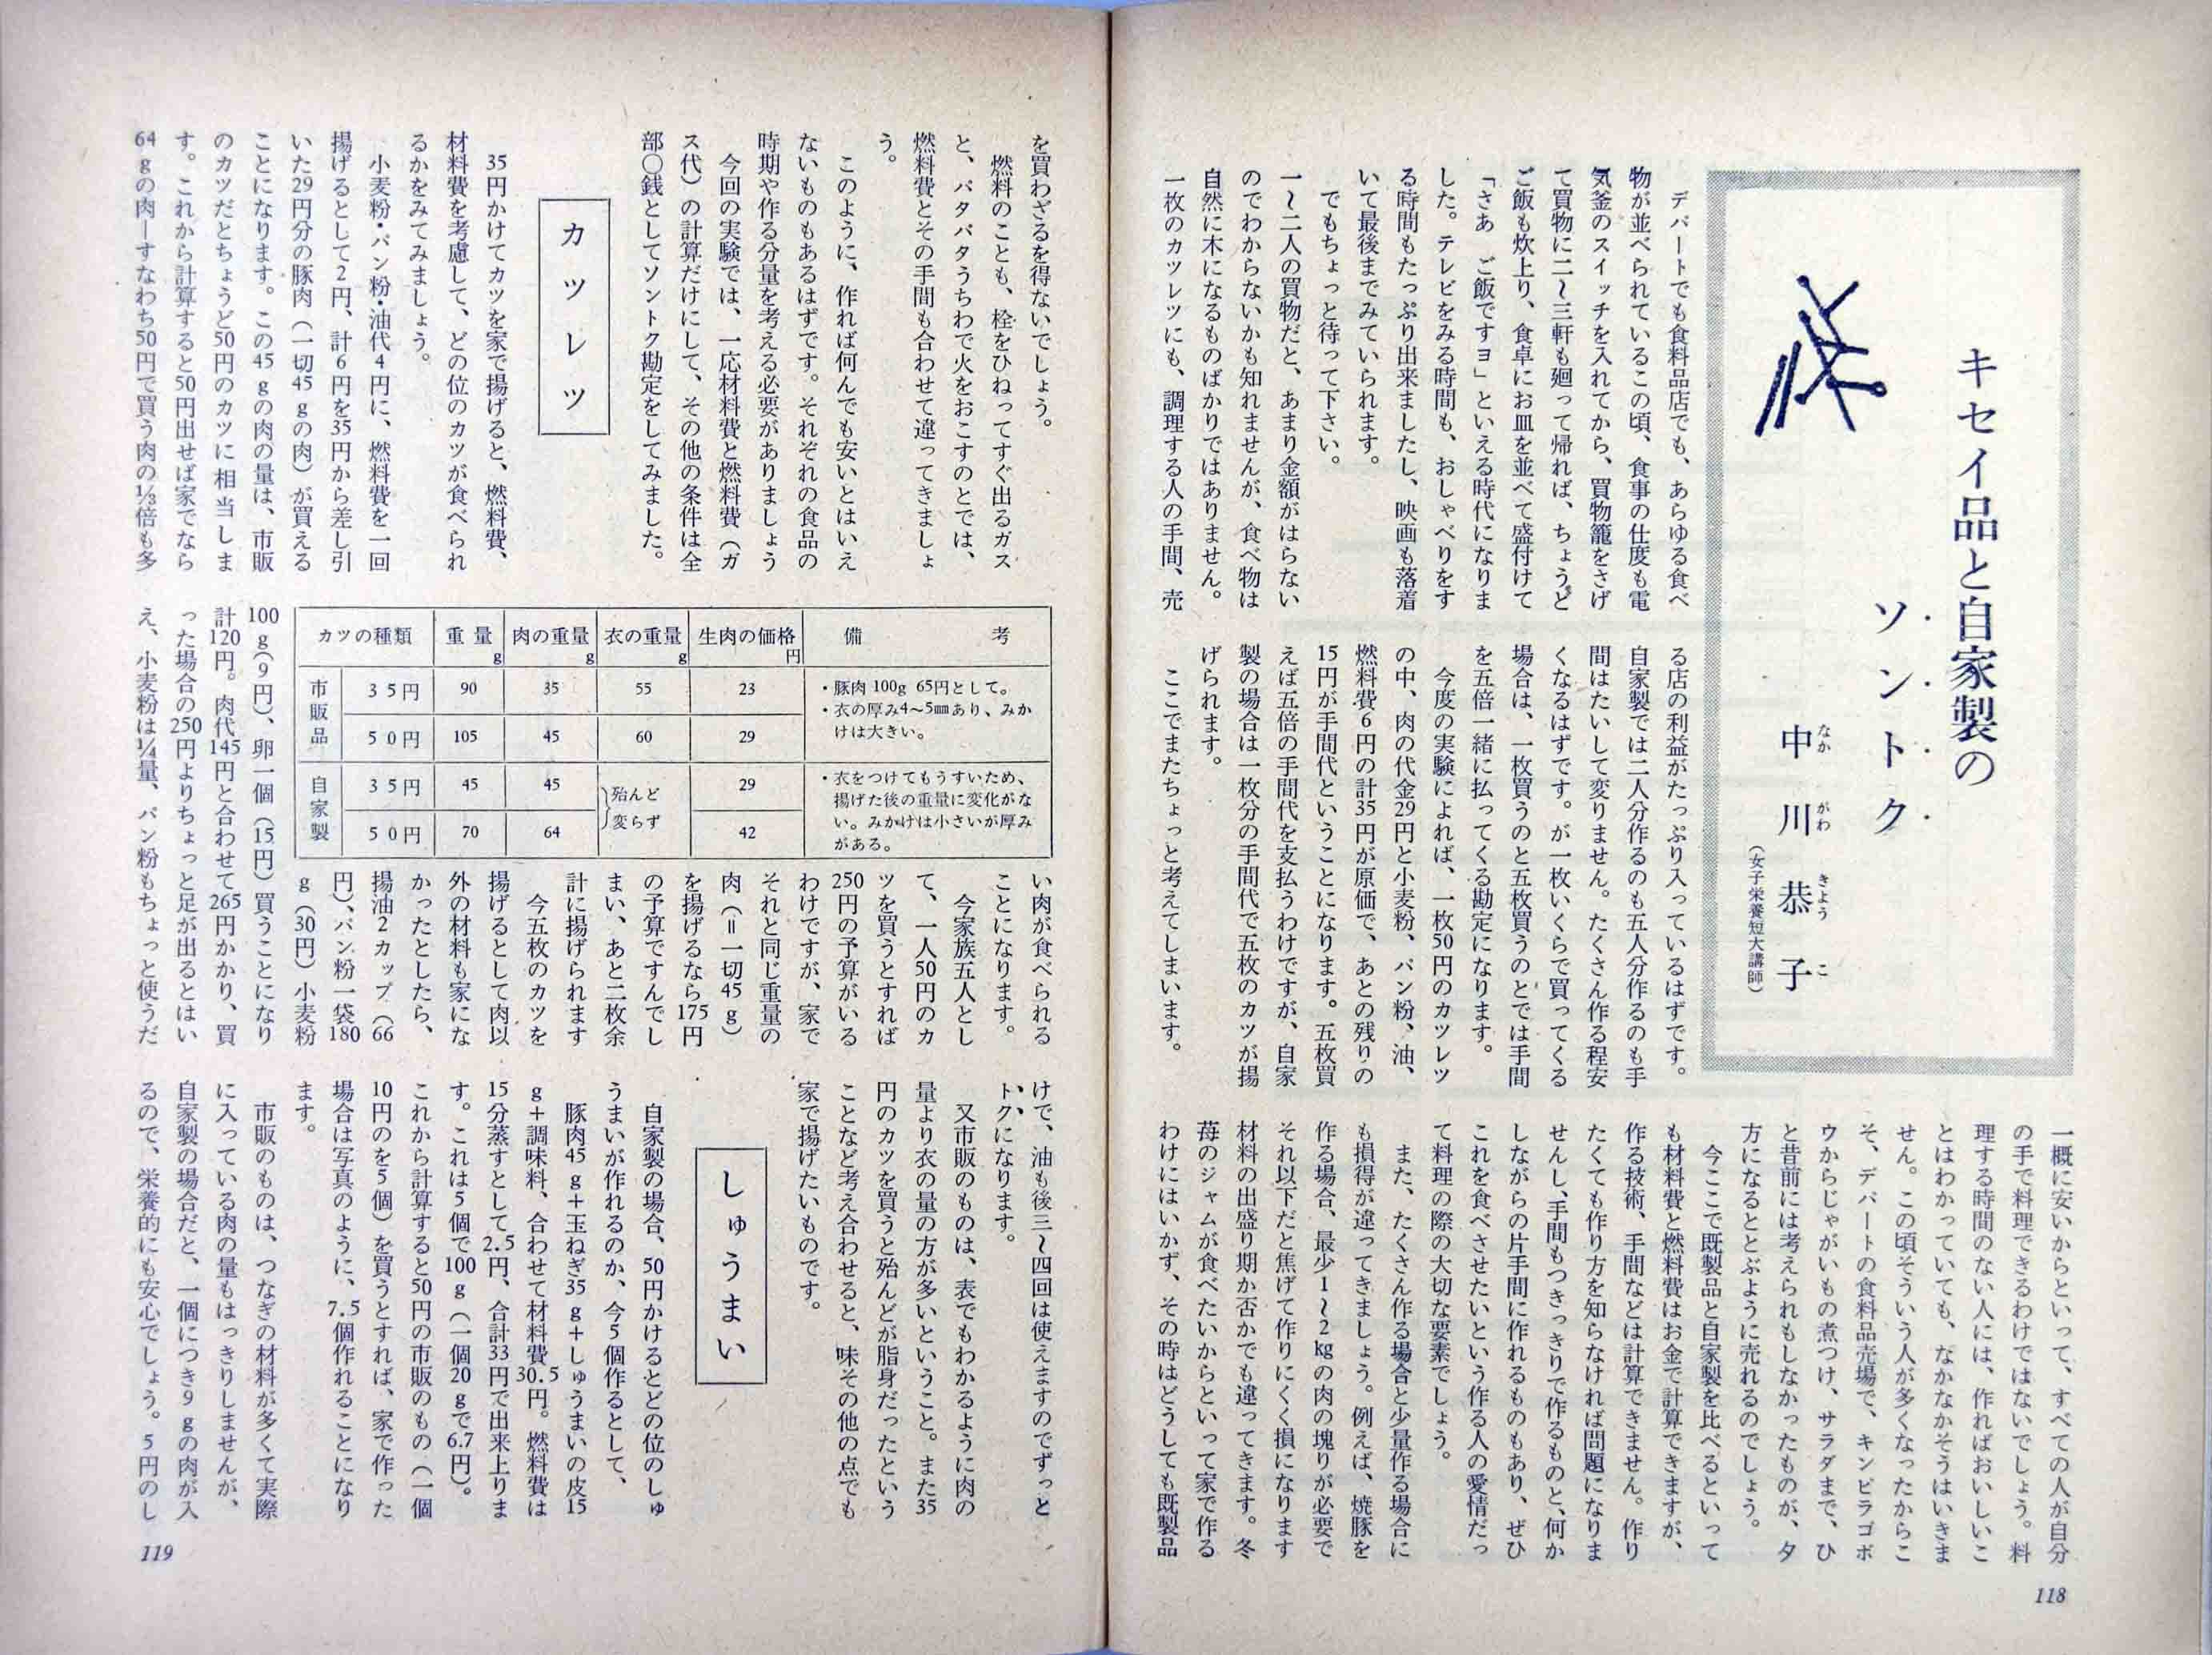 キセイ品と自家製の
ソントク
中川恭子
なかがわきょうこ
(女子栄養短大講師)
デパートでも食料品店でも、あらゆる食べ
物が並べられているこの頃、食事の仕度も電
気釜のスイッチを入れてから、買物籠をさげ
て買物に二〜三軒も廻って帰れば、ちょうど
ご飯も炊上り、食卓にお皿を並べて盛付けて
「さあ　ご飯ですヨ」といえる時代になりま
した。テレビをみる時間も、おしゃべりをす
る時間もたっぷり出来ましたし、映画も落着
いて最後までみていられます。
でもちょっと待って下さい。
一〜二人の買物だと、あまり金額がはらない
のでわからないかも知れませんが、食べ物は
自然に木になるものばかりではありません。
一枚のカツレツにも、調理する人の手間、売
る店の利益がたっぷり入っているはずです。
自家製では二人分作るのも五人分作るのも手
間はたいして変りません。たくさん作る程安
くなるはずです。が一枚いくらで買ってくる
場合は、一枚買うのと五枚買うのとでは手間
を五倍一緒に払ってくる勘定になります。
今度の実験によれば、一枚50円のカツレツ
の中、肉の代金29円と小麦粉、パン粉、油、
燃料費6円の計35円が原価で、あとの残りの
15円が手間代ということになります。五枚買
えば五倍の手間代を支払うわけですが、自家
製の場合は一枚分の手間代で五枚のカツが揚
げられます。
ここでまたちょっと考えてしまいます。
一概に安いからといって、すべての人が自分
の手で料理できるわけではないでしょう。料
理する時間のない人には、作ればおいしいこ
とはわかっていても、なかなかそうはいきま
せん。この頃そういう人が多くなったからこ
そ、デパートの食料品売場で、キンピラゴボ
ウからじゃがいもの煮つけ、サラダまで、ひ
と昔前には考えられもしなかったものが、夕
方になるととぶように売れるのでしょう。
今ここで既製品と自家製を比べるといって
も材料費と燃料費はお金で計算できますが、
作る技術、手間などは計算できません。作り
たくても作り方を知らなければ問題になりま
せんし、手間もつきっきりで作るものと、何か
しながらの片手間に作れるものもあり、ぜひ
これを食べさせたいという作る人の愛情だっ
て料理の際の大切な要素でしょう。
また、たくさん作る場合と少量作る場合に
も損得が違ってきましょう。例えば、焼豚を
作る場合、最少1〜2kgの肉の塊りが必要で
それ以下だと焦げて作りにくく損になります
材料の出盛り期か否かでも違ってきます。冬
苺のジャムが食べたいからといって家で作る
わけにはいかず、その時はどうしても既製品
118
を買わざるを得ないでしょう。
燃料のことも、栓をひねってすぐ出るガス
と、バタバタうちわで火をおこすのとでは、
燃料費とその手間も合わせて違ってきましょ
う。
このように、作れば何んでも安いとはいえ
ないものもあるはずです。それぞれの食品の
時期や作る分量を考える必要がありましょう
今回の実験では、一応材料費と燃料費（ガ
ス代）の計算だけにして、その他の条件は全
部〇銭としてソントク勘定をしてみました。
カツレツ
35円かけてカツを家で揚げると、燃料費、
材料費を考慮して、どの位のカツが食べられ
るかをみてみましょう。
小麦粉・パン粉・油代4円に、燃料費を一回
揚げるとして2円、計6円を35円から差し引
いた29円分の豚肉（一切45gの肉）が買える
ことになります。この45gの肉の量は、市販
のカツだとちょうど50円のカツに相当しま
す。これから計算すると50円出せば家でなら
64gの肉―すなわち50円で買う肉の⅓倍も多
カツの種類　重量g　肉の重量g　衣の重量g　生肉の価格円　備考
市販品　35円　90　35　55　23　・豚肉100g 65円として。
・衣の厚み4〜5㎜あり、みか
けは大きい。
50円　105　45　60　29
自家製　35円　45　45　殆んど変らず　29　・衣をつけてもうすいため、
揚げた後の重量に変化がな
い。みかけは小さいが厚み
がある。
50円　70　64　42
い肉が食べられる
ことになります。
今家族五人とし
て、一人50円のカ
ツを買うとすれば
250円の予算がいる
わけですが、家で
それと同じ重量の
肉（＝一切45g）
を揚げるなら175円
の予算ですんでし
まい、あと二枚余
計に揚げられます
今五枚のカツを
揚げるとして肉以
外の材料も家にな
かったとしたら、
揚油2カップ（66
円）、パン粉一袋180
g（30円）小麦粉
100g（9円）、卵一個（15円）買うことになり
計120円。肉代145円と合わせて265円かかり、買
った場合の250円よりちょっと足が出るとはい
え、小麦粉は¼量、パン粉もちょっと使うだ
けで、油も後三〜四回は使えますのでずっと
トクになります。
又市販のものは、表でもわかるように肉の
量より衣の量の方が多いということ。また35
円のカツを買うと殆んどが脂身だったという
ことなど考え合わせると、味その他の点でも
家で揚げたいものです。
しゅうまい
自家製の場合、50円かけるとどの位のしゅ
うまいが作れるのか、今5個作るとして、
豚肉45g＋玉ねぎ35g＋しゅうまいの皮15
g＋調味料、合わせて材料費30.5円。燃料費は
15分蒸すとして2.5円、合計33円で出来上りま
す。これは5個で100g（一個20gで6.7円）。
これから計算すると50円の市販のもの（一個
10円のを5個）を買うとすれば、家で作った
場合は写真のように、7.5個作れることになり
ます。
市販のものは、つなぎの材料が多くて実際
に入っている肉の量もはっきりしませんが、
自家製の場合だと、一個につき9gの肉が入
るので、栄養的にも安心でしょう。5円のし
119